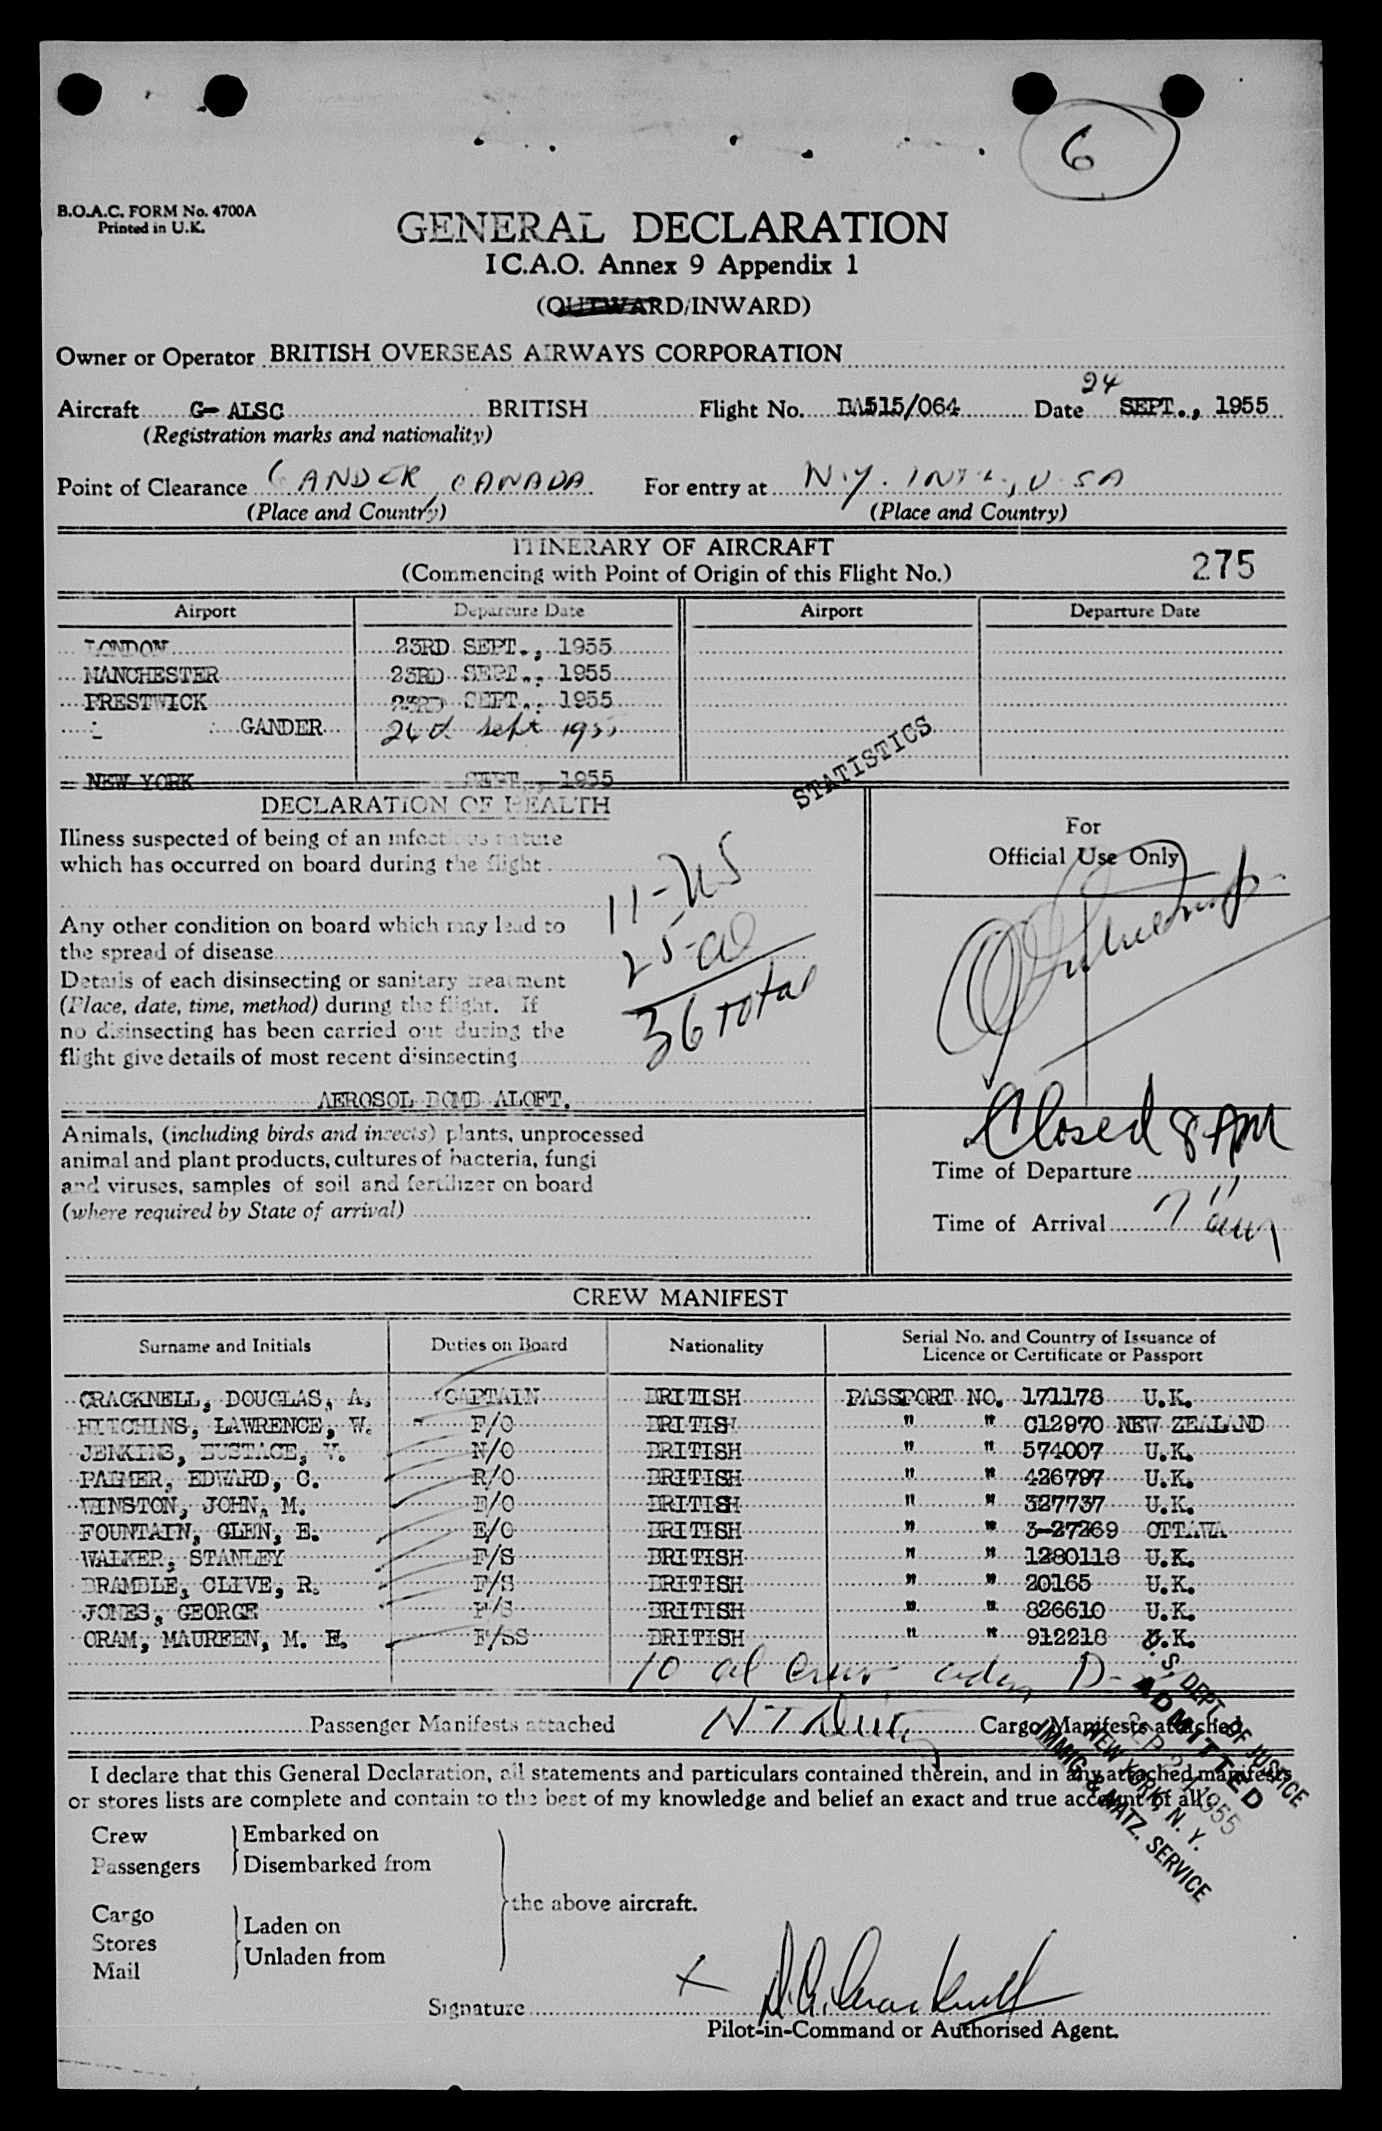 6
B.O.A.C. FORM No. 4700A
Printed in U.K.
GENERAL DECLARATION
I C.A.O. Annex 9 Appendix 1
(OUTWARD/INWARD)
Owner or Operator BRITISH OVERSEAS AIRWAYS CORPORATION
24
Aircraft G-ALSC BRITISH Flight No. BA515/064 Date SEPT., 1955
(Registration marks and nationality)
Point of Clearance GANDER, CANADA For entry at N.Y. INT'L, U.S.A
(Place and Country) (Place and Country)
ITINERARY OF AIRCRAFT
(Commencing with Point of Origin of this Flight No.) 275
Airport Departure Date Airport Departure Date
LONDON 23RD SEPT., 1955
MANCHESTER 23RD SEPT., 1955
PRESTWICK 23RD SEPT., 1955
GANDER 24th Sept 1955
NEW YORK SEPT., 1955
STATISTICS
DECLARATION OF HEALTH
Illness suspected of being of an infectious nature
which has occurred on board during the flight
Any other condition on board which may lead to
the spread of disease
Details of each disinsecting or sanitary treatment
(Place, date, time, method) during the flight. If
no disinsecting has been carried out during the
flight give details of most recent disinsecting
AEROSOL BOMB ALOFT.
11-US
25-al
36 total
For
Official Use Only
Closed 8 AM
Time of Departure
Time of Arrival 7
Animals, (including birds and insects) plants, unprocessed
animal and plant products, cultures of bacteria, fungi
and viruses, samples of soil and fertilizer on board
(where required by State of arrival)
CREW MANIFEST
Surname and Initials Duties on Board Nationality Serial No. and Country of Issuance of
Licence or Certificate or Passport
CRACKNELL, DOUGLAS, A. CAPTAIN BRITISH PASSPORT NO. 171178 U.K.
HITCHINS, LAWRENCE, W. F/O BRITISH " " C12970 NEW ZEALAND
JENKINS, EUSTACE, V. N/O BRITISH " " 574007 U.K.
PALMER, EDWARD, C. R/O BRITISH " " 426797 U.K.
WINSTON, JOHN, M. E/O BRITISH " " 327737 U.K.
FOUNTAIN, GLEN, E. E/O BRITISH " " 3-27269 OTTAWA
WALKER, STANLEY F/S BRITISH " " 1280118 U.K.
BRAMBLE, CLIVE, R. F/S BRITISH " " 20165 U.K.
JONES, GEORGE F/S BRITISH " " 826610 U.K.
ORAM, MAUREEN, M. E. F/SS BRITISH " " 912218 U.K.
10 al Crew adm D-
Passenger Manifests attached Cargo Manifests attached
U.S. DEPT. OF JUSTICE
ADMITTED
SEP 24 1955
NEW YORK, N. Y.
IMMIG. & NATZ. SERVICE
I declare that this General Declaration, all statements and particulars contained therein, and in any attached manifests
or stores lists are complete and contain to the best of my knowledge and belief an exact and true account of all
Crew Embarked on
Passengers Disembarked from
the above aircraft.
Cargo Laden on
Stores Unladen from
Mail
Signature x D.A. Cracknell
Pilot-in-Command or Authorised Agent.